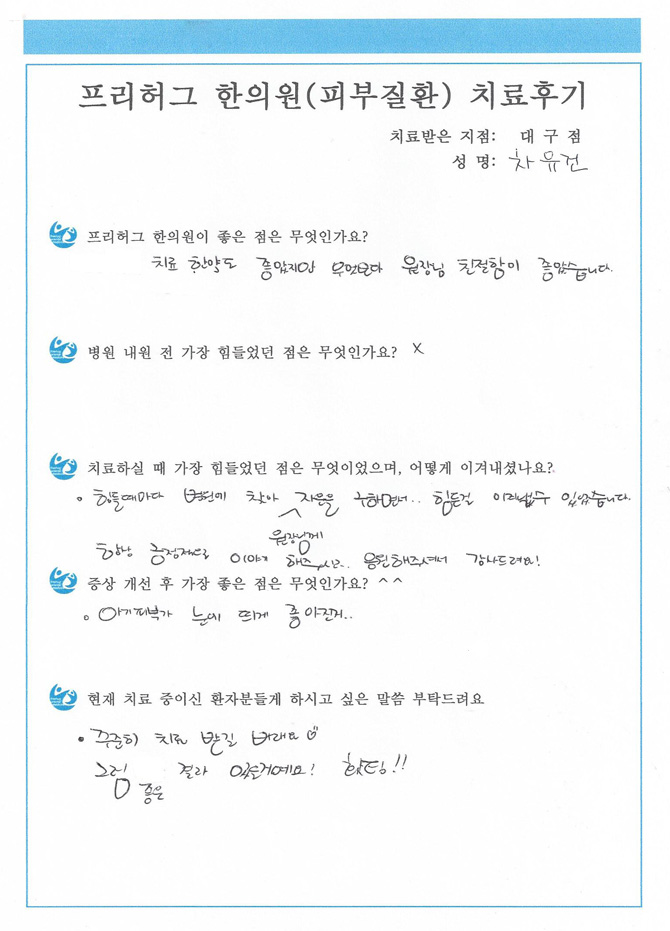 프리허그 한의원(피부질환) 치료후기
치료받은 지점: 대 구 점
성 명: 차유건
프리허그 한의원이 좋은 점은 무엇인가요?
치료 한약도 좋았지만 무엇보다 원장님 친절함이 좋았습니다.
병원 내원 전 가장 힘들었던 점은 무엇인가요? X
치료하실 때 가장 힘들었던 점은 무엇이었으며, 어떻게 이겨내셨나요?
힘들때마다 병원에 찾아 자문을 구하면서.. 힘든걸 이겨낼수 있었습니다.
원장님께
항상 긍정적으로 이야기 해주시고.. 응원해주셔서 감사드려요!
증상 개선 후 가장 좋은 점은 무엇인가요? ^^
아기피부가 눈에 띄게 좋아진거..
현재 치료 중이신 환자분들께 하시고 싶은 말씀 부탁드려요
꾸준히 치료 받길 바래요
그럼 결과 있을거예요! 화팅!!
좋은